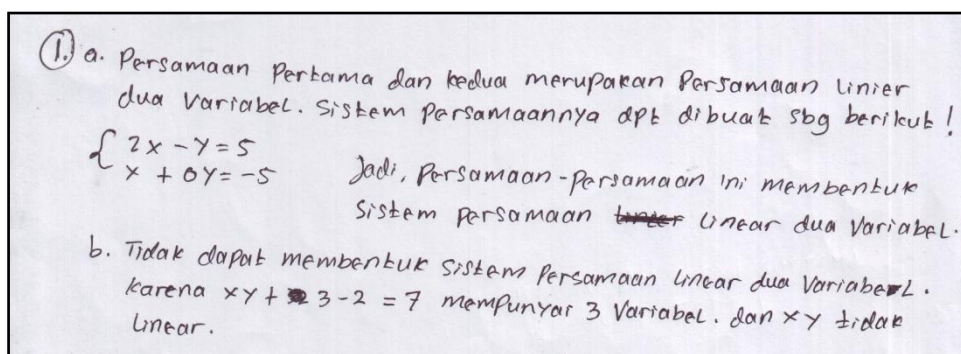 1. a. Persamaan Pertama dan kedua merupakan Persamaan linier
dua variabel. Sistem Persamaannya dpt dibuat sbg berikut!
{ 2x - y = 5
x + 0y = -5
Jadi, Persamaan-Persamaan ini membentuk
Sistem persamaan linear dua Variabel.
b. Tidak dapat membentuk Sistem Persamaan linear dua Variabel.
karena xy + 3 - 2 = 7 mempunyai 3 Variabel. dan xy tidak
linear.